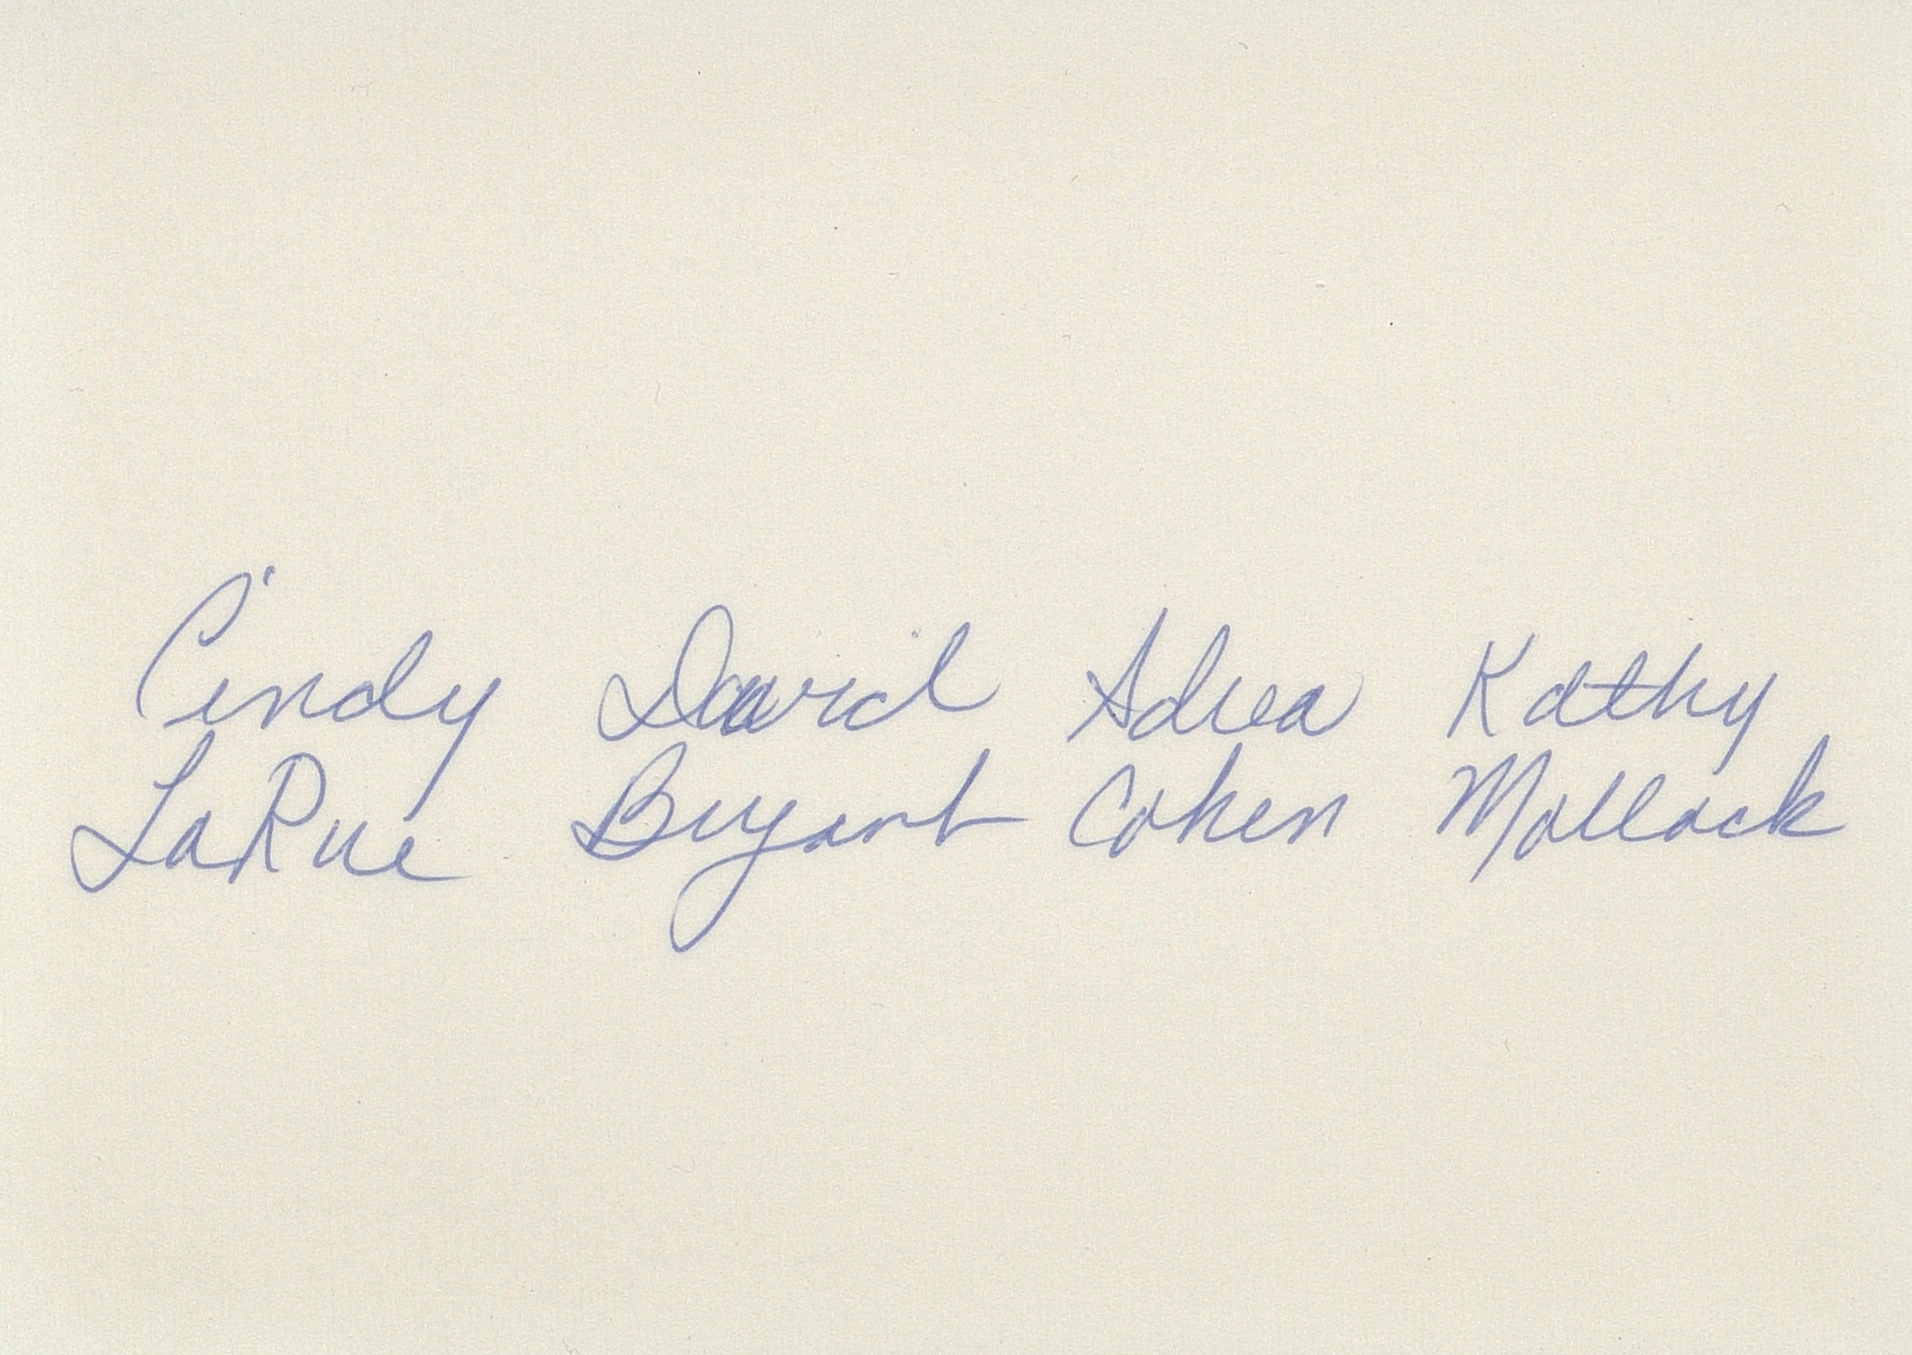 Cindy David Adrea Kathy
LaRue Bryant Cohen Mollack